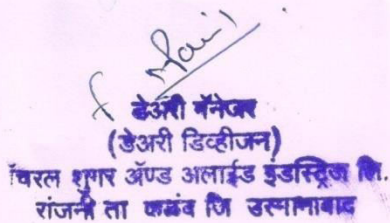 डेअरी मॅनेजर
(डेअरी डिव्हीजन)
चरल शुगर ॲण्ड अलाईड इंडस्ट्रिज लि.
रांजनी ता कळंब जि उस्मानाबाद